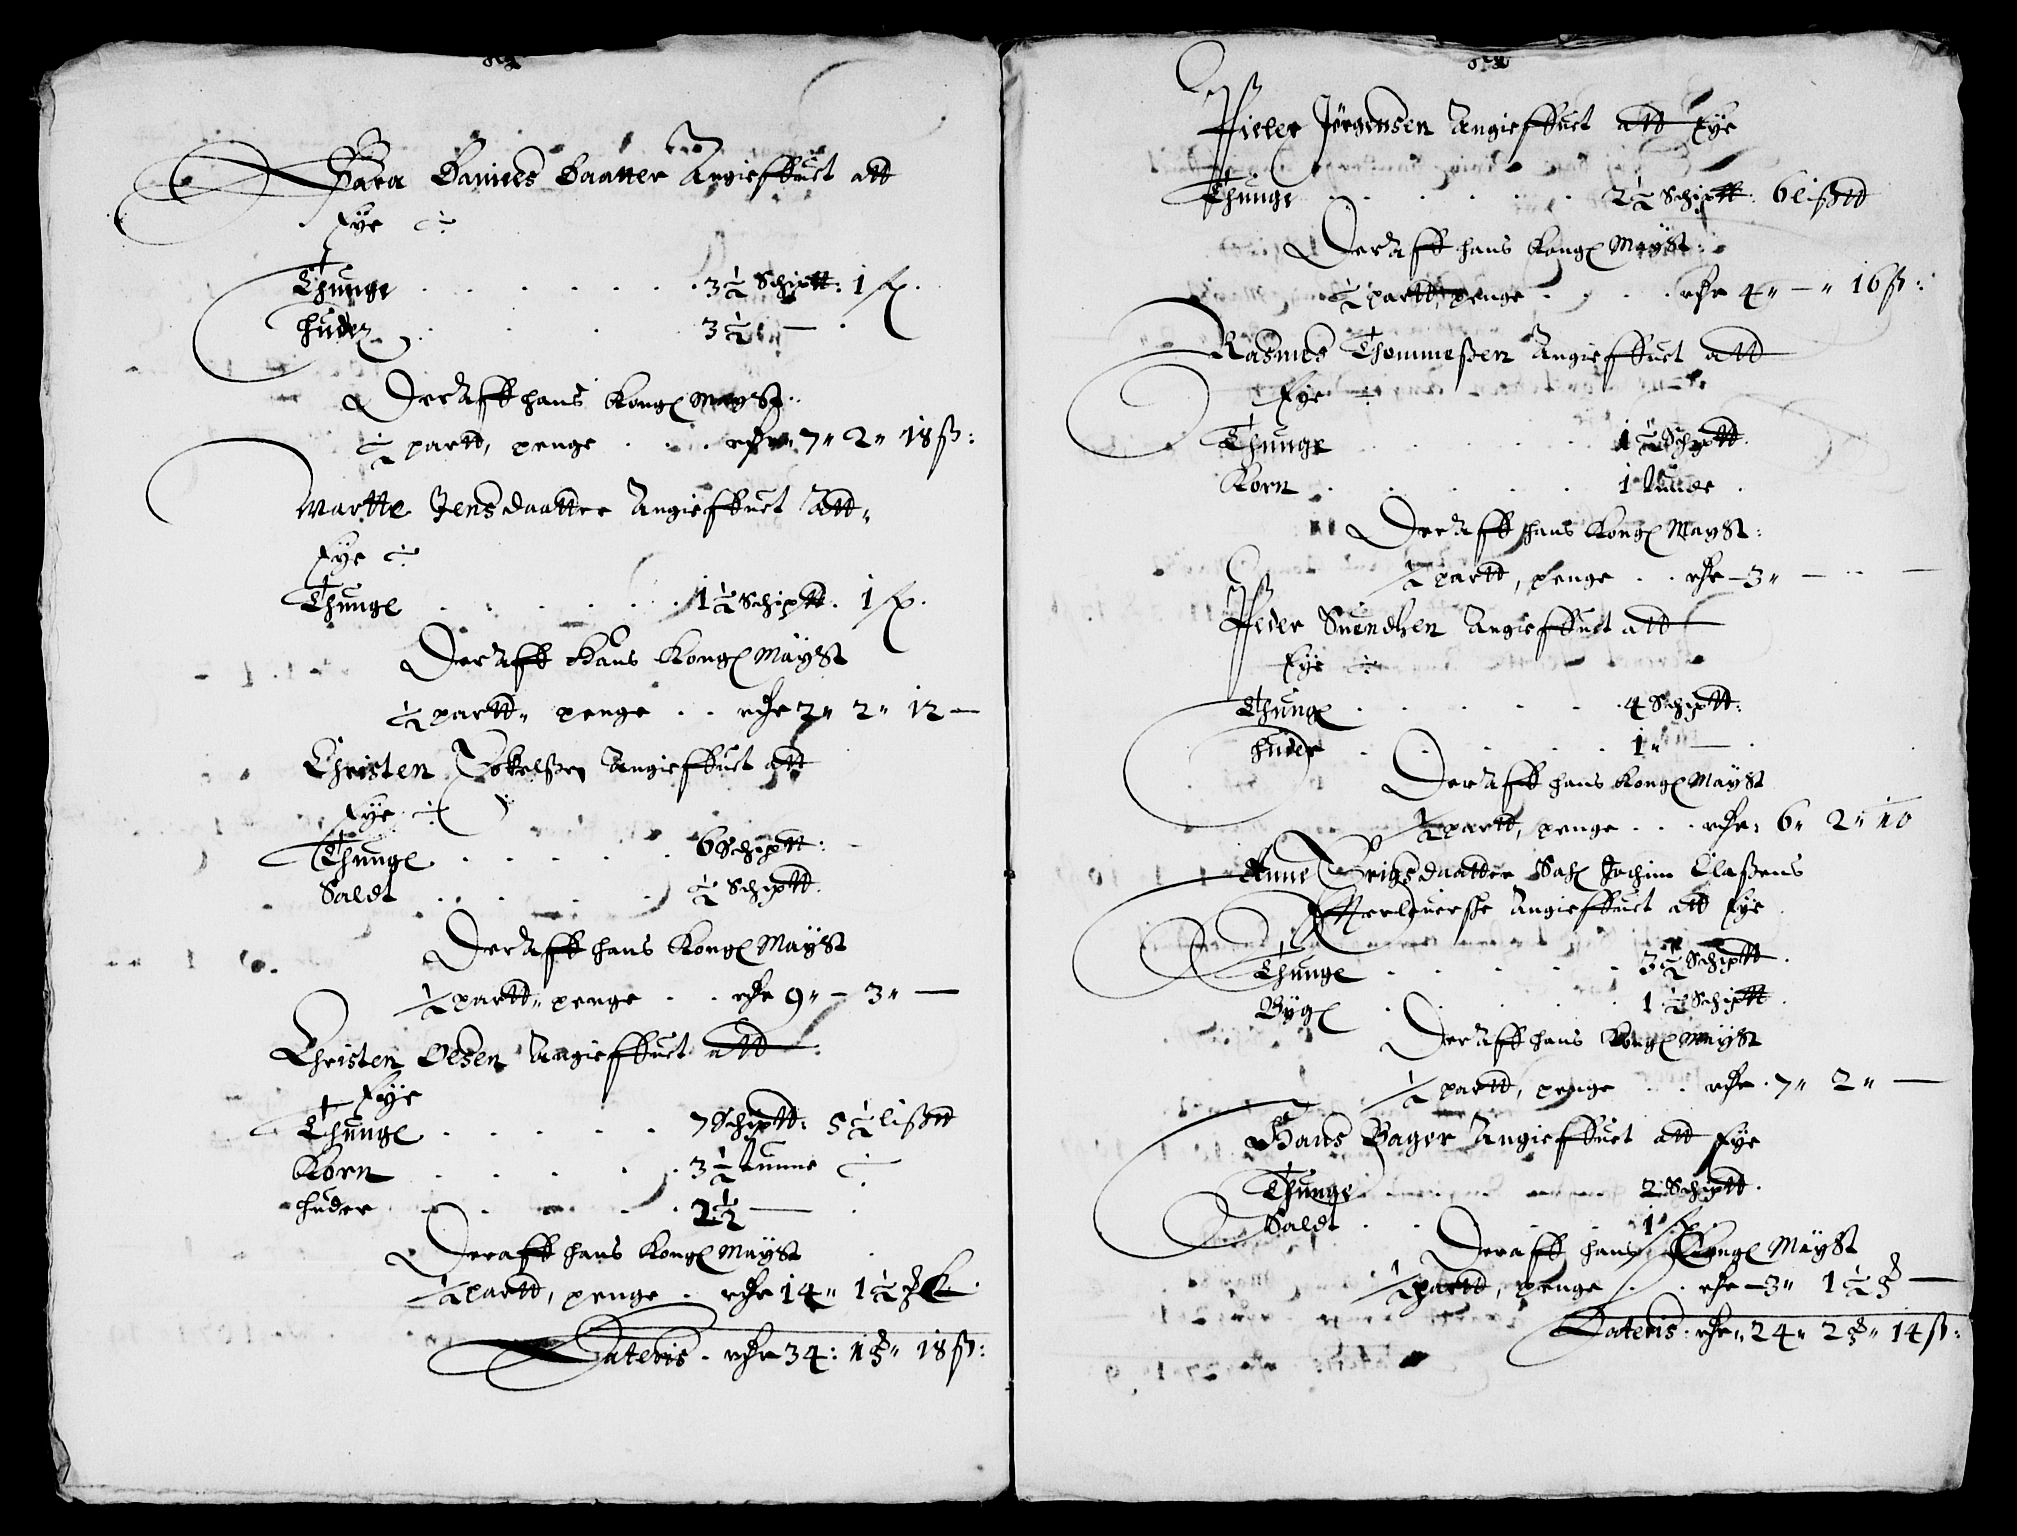 Sara Daniels Daatter Angieffuet att
Eye ÷
Thunge . . . . . . 3½ Schiptt: 1 fp.
huder . . . 3½ — .
Deraff hans Kongl Mayst:
½ partt, penge . . . rdr 7" 2" 18 ß:
Martte Jensdaatter Angieffuet Att"
Eye ÷
Thunge . . . . . . 1½ Schiptt. 1 fp.
Deraff Hans Kongl Mayst
½ partt" penge . . rdr 2" 2" 12 —
Christen Angieffuet att
Eye ÷
Thunge . . . . . 6 Schiptt:
Saldt . . . . . ½ Schiptt.
Deraff hans Kongl Mayst
½ partt" penge . . rdr 9" — 3" —
Christen Olsen Angieffuet att
Eye
Thunge . . . . . 7 Schiptt: 5½ lißtt
Korn . . . . . 3½ tunne ÷
huder . . . . . 2½ — .
Deraff hans Kongl Mayst
½ partt, penge . rdr 14" 1½
Lateris . rdr 34: 1 " 18 ß:
Pieter Jörgensen Angieffuet att Eye
Thunge . . . . . 2½ Schiptt: 6 lißtt
Deraff hans Kongl Mayst:
½ partt, penge . . . rdr 4" — " 16 ß:
Rasmus Thommeßen Angieffuet att
Eye ÷
Thunge . . . . . 1½ Schiptt.
Korn . . . . . 1 tunde .
Deraff hans Kongl Mayst:
½ partt, penge . . rdr — 3" — " —
Peder Suendßen Angieffuet att
Eye ÷
Thunge . . . . . 4 Schiptt:
huder . . . . . 1" — .
Deraff hans Kongl Mayst
½ partt, penge . . . rdr: 6" 2" 10
Anne Erigsdaatter Sal Jochim Claßens
Effterleuerske Angieffuet att Eye
Thunge . . . . . 3½ Schiptt.
Bÿg . . . . . 1½ Schiptt.
Deraff hans Kongl Mayst
½ partt, penge . . rdr . 7" 2" —
Hans Bager Angieffuet att Eye
Thunge . . . . . 2 Schiptt.
Saldt . . . . . 1 fp.
Deraff hans Kongl Mayst
½ partt, penge . . . rdr — 3" 1½ —
Lateris . rdr" 24" 2 " 14 ß: